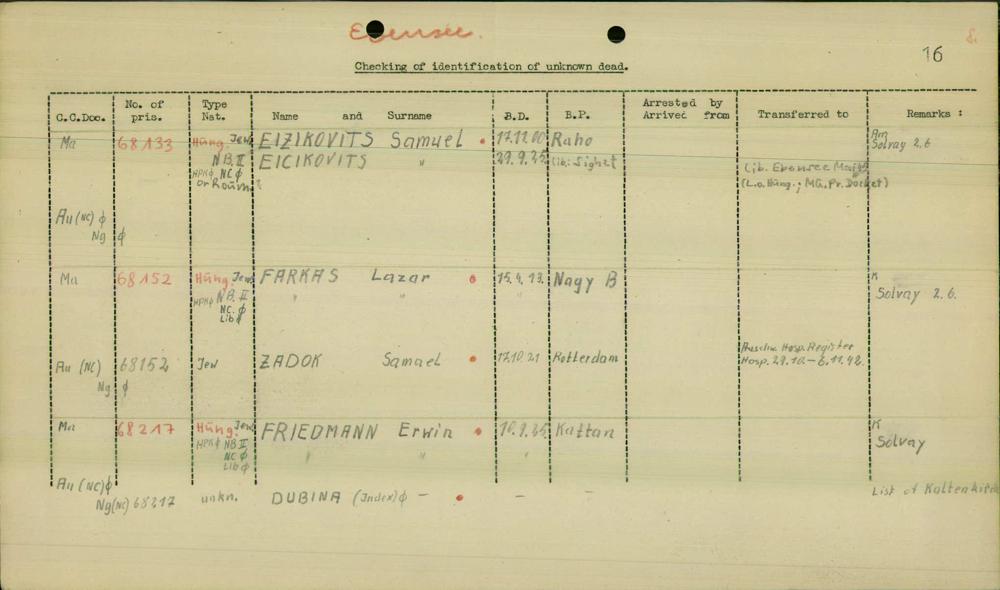 Ebensee.
16
Checking of identification of unknown dead.
C.C.Doc. No. of pris. Type Nat. Name and Surname B.D. B.P. Arrested by Arrived from Transferred to Remarks :
Ma 68133 Hung. Jew EIZIKOVITS Samuel 17.12.00 Raho Solvay 2.6
N.B. II EICIKOVITS " 29.9.25 Lib: Sighet
HPKϕ NC ϕ Lib. Ebensee
or Roum? (L.o. Hung.; MG. Pr. Docket)
Au (NC) ϕ
Ng ϕ
Ma 68152 Hung. Jew FARKAS Lazar 15.4.13. Nagy B K
HPKϕ N.B. II " " " Solvay 2.6.
NC. ϕ
Lib ϕ
Au (NC) 68152 Jew ZADOK Samuel 17.10.21 Rotterdam Auschw. Hosp. Register
Hosp. 29.10. – 6.11.42.
Ng ϕ
Ma 68217 Hung. Jew FRIEDMANN Erwin 10.9.25 Kattan K
HPKϕ NB II " " Solvay
NC ϕ
Lib ϕ
Au (NC) ϕ
Ng (NC) 68217 unkn. DUBINA (Index) ϕ – – – List of